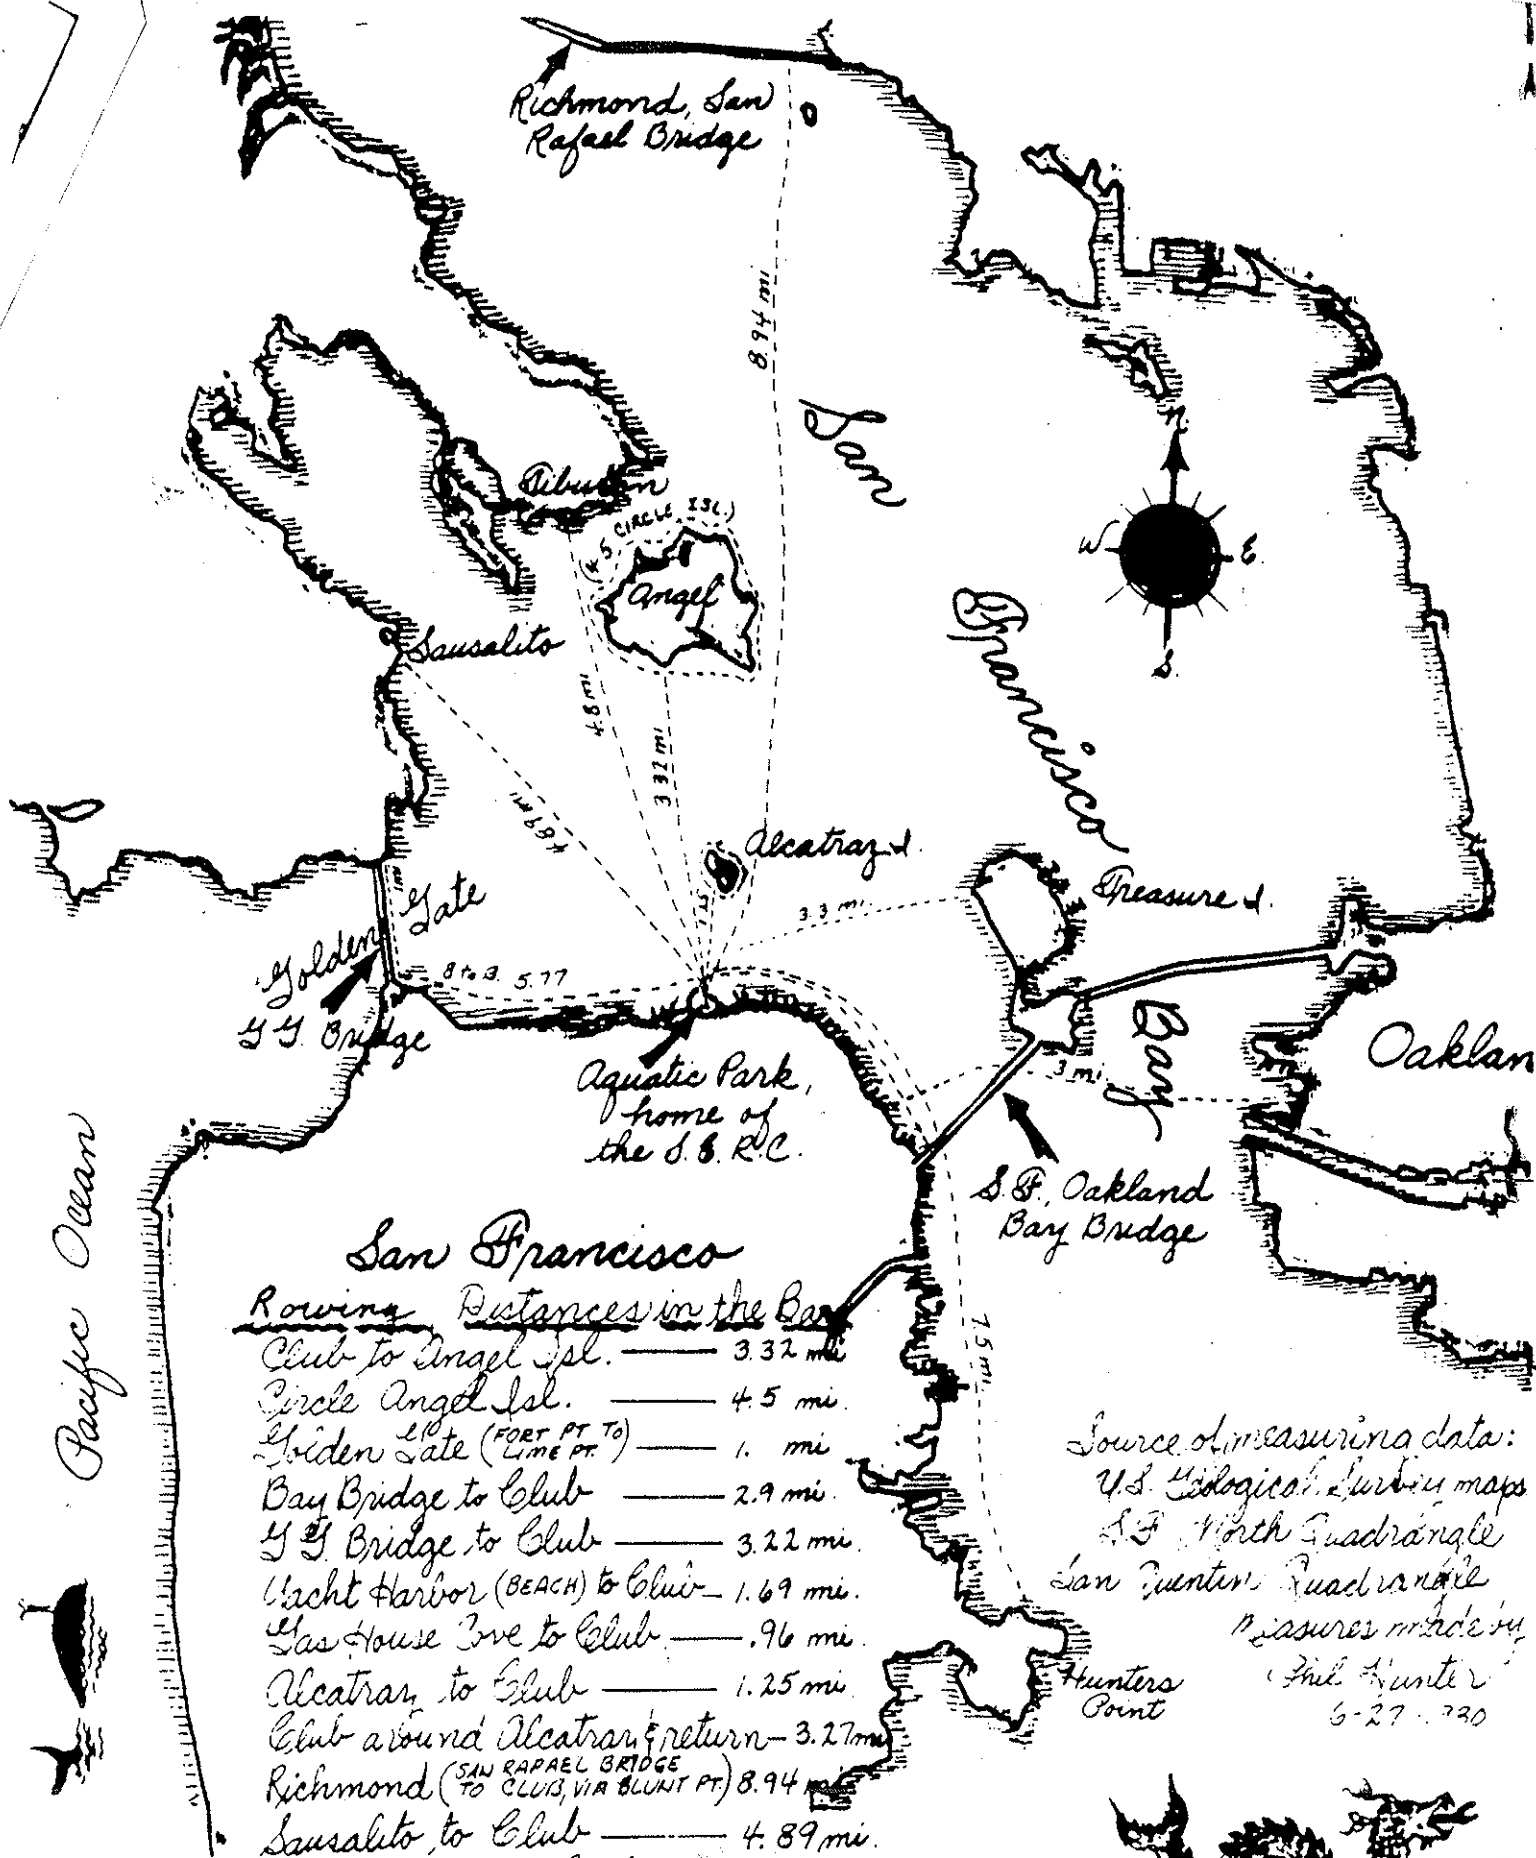 Richmond, San
Rafael Bridge
8.94 mi
San
Francisco
Bay
N.
W
E.
S.
Tiburon
CIRCLE ISL.)
Angel
Sausalito
4.8 mi
3.32 mi
4.89 mi
Alcatraz I.
Treasure I.
3.3 mi.
Golden
Gate
G G. Bridge
B to B. 5.77
Aquatic Park,
home of
the
3 mi
Oaklan
S.F., Oakland
Bay Bridge
7.5 mi
Pacific Ocean
San Francisco
Rowing Distances in the Bay
Club to Angel Isl. 3.32 mi
Circle Angel Isl. 4.5 mi.
Golden Gate (FORT PT TO LIME PT.) 1. mi
Bay Bridge to Club 2.9 mi.
G G. Bridge to Club 3.22 mi.
Yacht Harbor (BEACH) to Club 1.69 mi.
Gas House Cove to Club .96 mi.
Alcatraz to Club 1.25 mi.
Club around Alcatraz & return 3.27 mi
Richmond (SAN RAPAEL BRIDGE TO CLUB, VIA BLUNT PT.) 8.94 mi
Sausalito to Club 4.89 mi.
Source of measuring data:
U.S. Geological Survey maps
S.F. North Quadrangle
San Quentin Quadrangle
Measures made by
Hunter
6-27
Hunters
Point